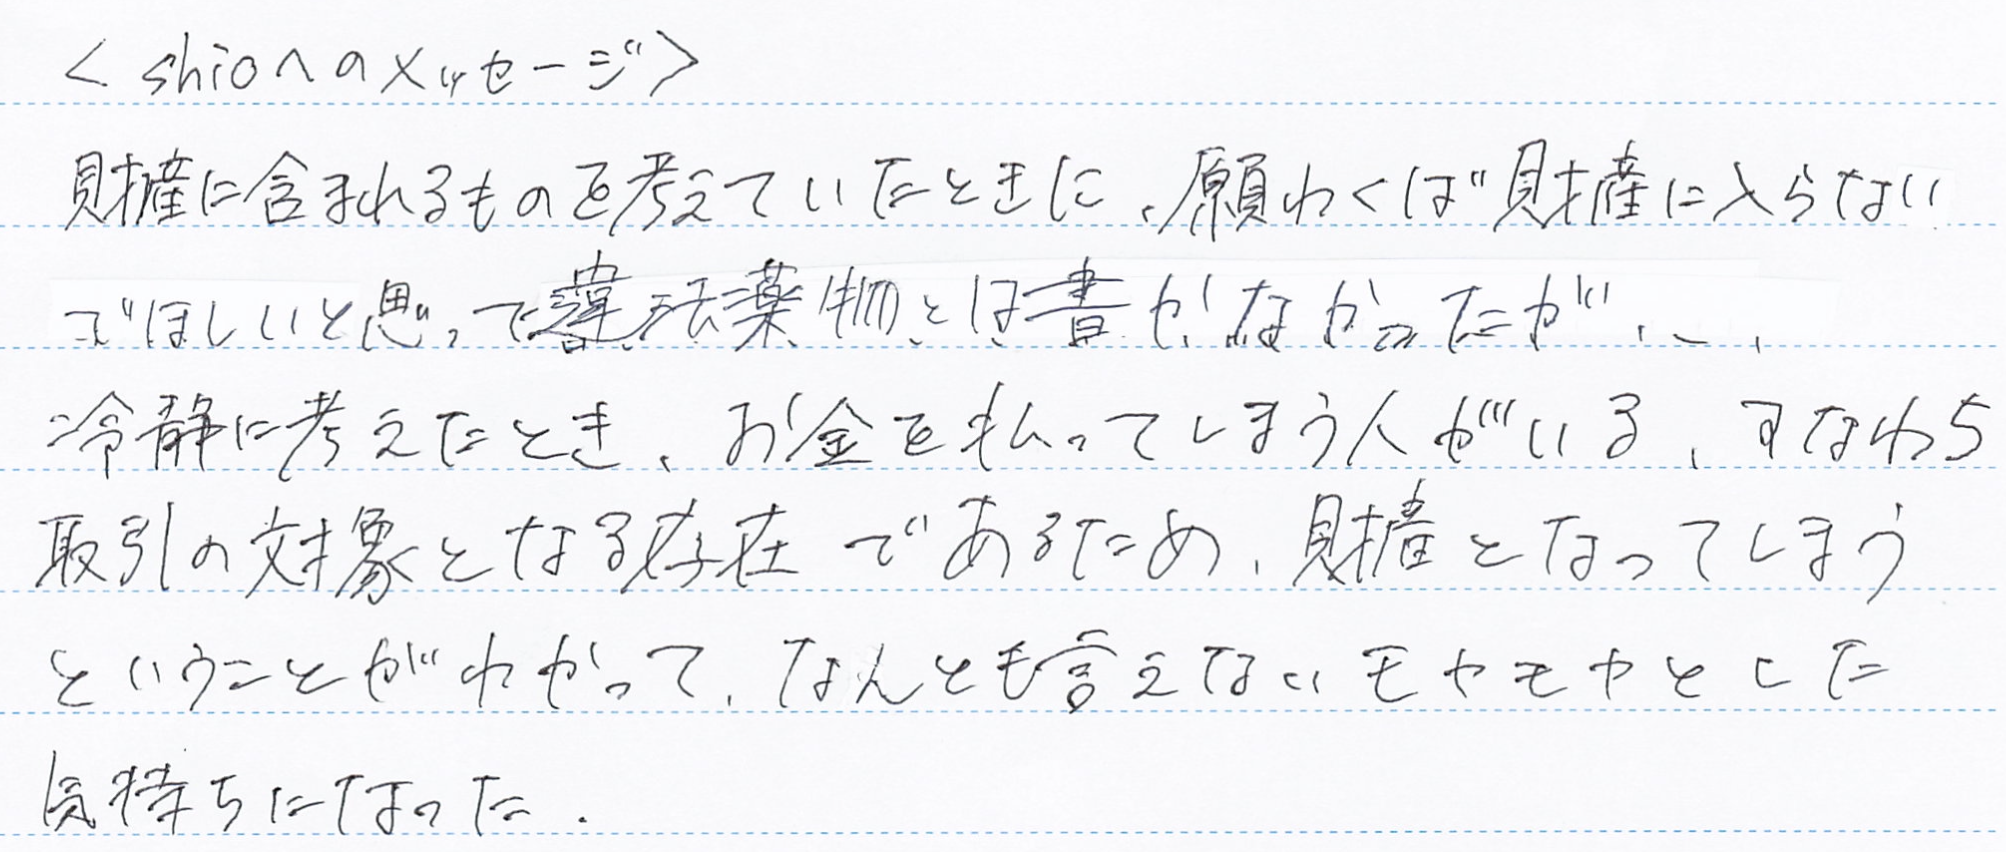 <shioへのメッセージ>
財産に含まれるものを考えていたときに、願わくば財産に入らない
でほしいと思って違法薬物とは書かなかったが、、、
冷静に考えたとき、お金を払ってしまう人がいる、すなわち
取引の対象となる存在であるため、財産となってしまう
ということがわかって、なんとも言えないモヤモヤとした
気持ちになった.